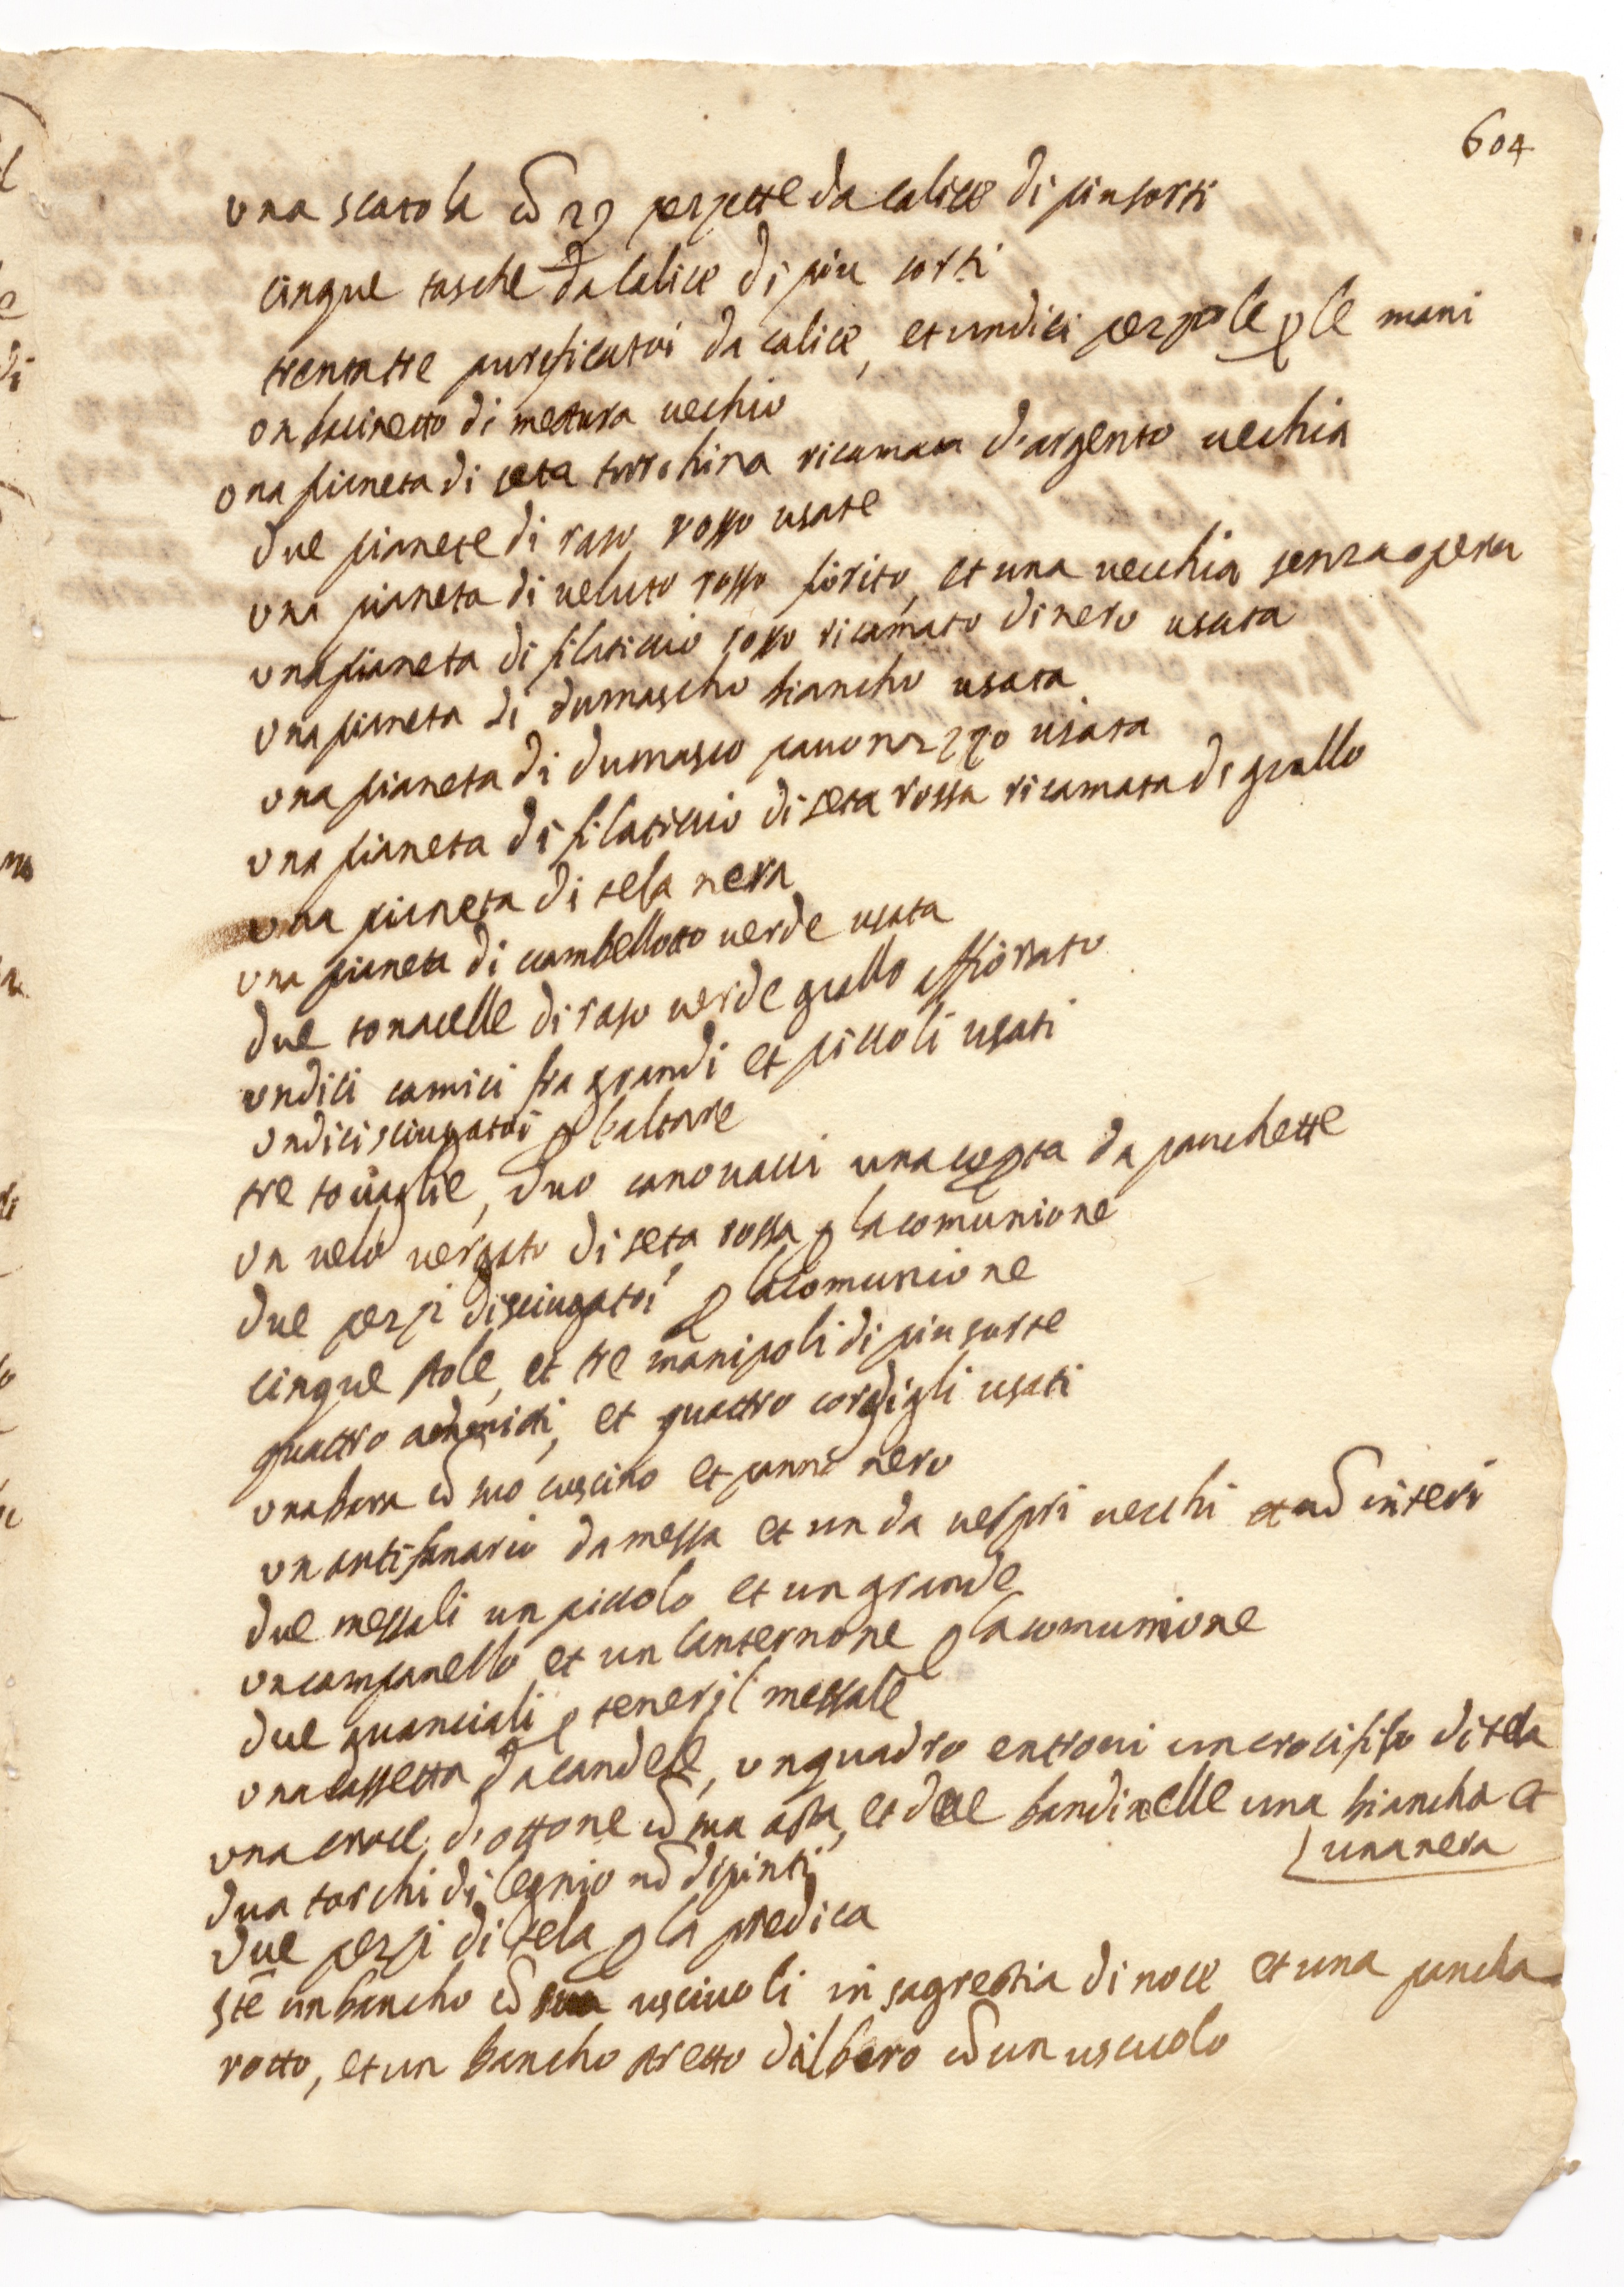 604
una scatola cō 23 pezzette da calice di piu sorti
cinque tasche da calice di piu sorti
trentatre purificatoi da calice, et undici pezzole p le mani
un bacinetto di mestura vechio
una pianeta di seta turchina ricamata d'argento vechia
due pianete di raso rosso usate
una pianeta di veluto rosso fiorito, et una vecchia senza opera
una pianeta di filaticcio rosso ricamato di nero usata
una pianeta di dumascho biancho usata
una pianeta di dumasco pavonazzo usata
una pianeta di filaticcio di seta rossa ricamata di giallo
una pianeta di tela nera
una pianeta di ciambellotto verde usata
due tonacelle di raso verde giallo affiorato
undici camici fra grandi et piccoli usati
undici sciugatoi p l'altare
tre tovaglie, duo canovacci una copta da panchette
un velo vergato di seta rossa p la comunione
due pezzi di sciugatoi p la comunione
cinque stole, et tre manipoli di piu sorte
quattro et quattro cordigli usati
una bara cō suo cuscino et panno nero
un antifanario da messa et un da vespri vecchi et nō interi
due messali un piccolo et un grande
un campanello et un lanternone p la comunione
due guanciali p tener il messale
una cassetta da candele, un quadro entrovi un crocifisso di tela
una croce d'ottone cō sua asta, et due bandinelle una biancha et
una nera
dua torchi di legnio nō dipinti
due pezzi di tela p la predica
Itē un bancho cō usciuoli in sagrestia di noce et una pancha
rotto, et un bancho stretto d'albero cō un usciuolo